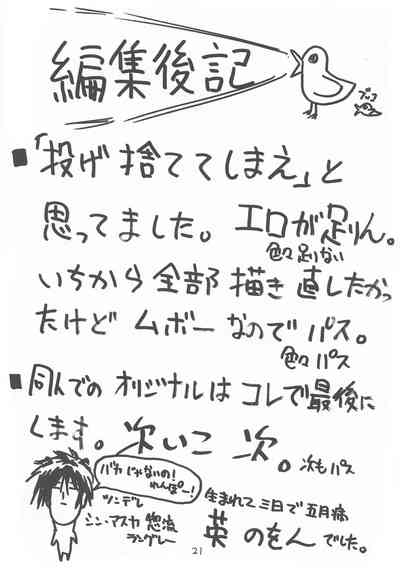 編集後記
ブッコ
■「投げ捨ててしまえ」と
思ってました。エロが足りん。
色々足りない
いちから全部描き直したかっ
たけどムボーなのでパス。
色々パス
■同人でのオリジナルはコレで最後に
します。次いこ次。次もパス
バカじゃないの!
れんぽー!
ツンデレ
シン・アスカ 惣流
ラングレー
生まれて三日で五月病
英のをんでした。
21